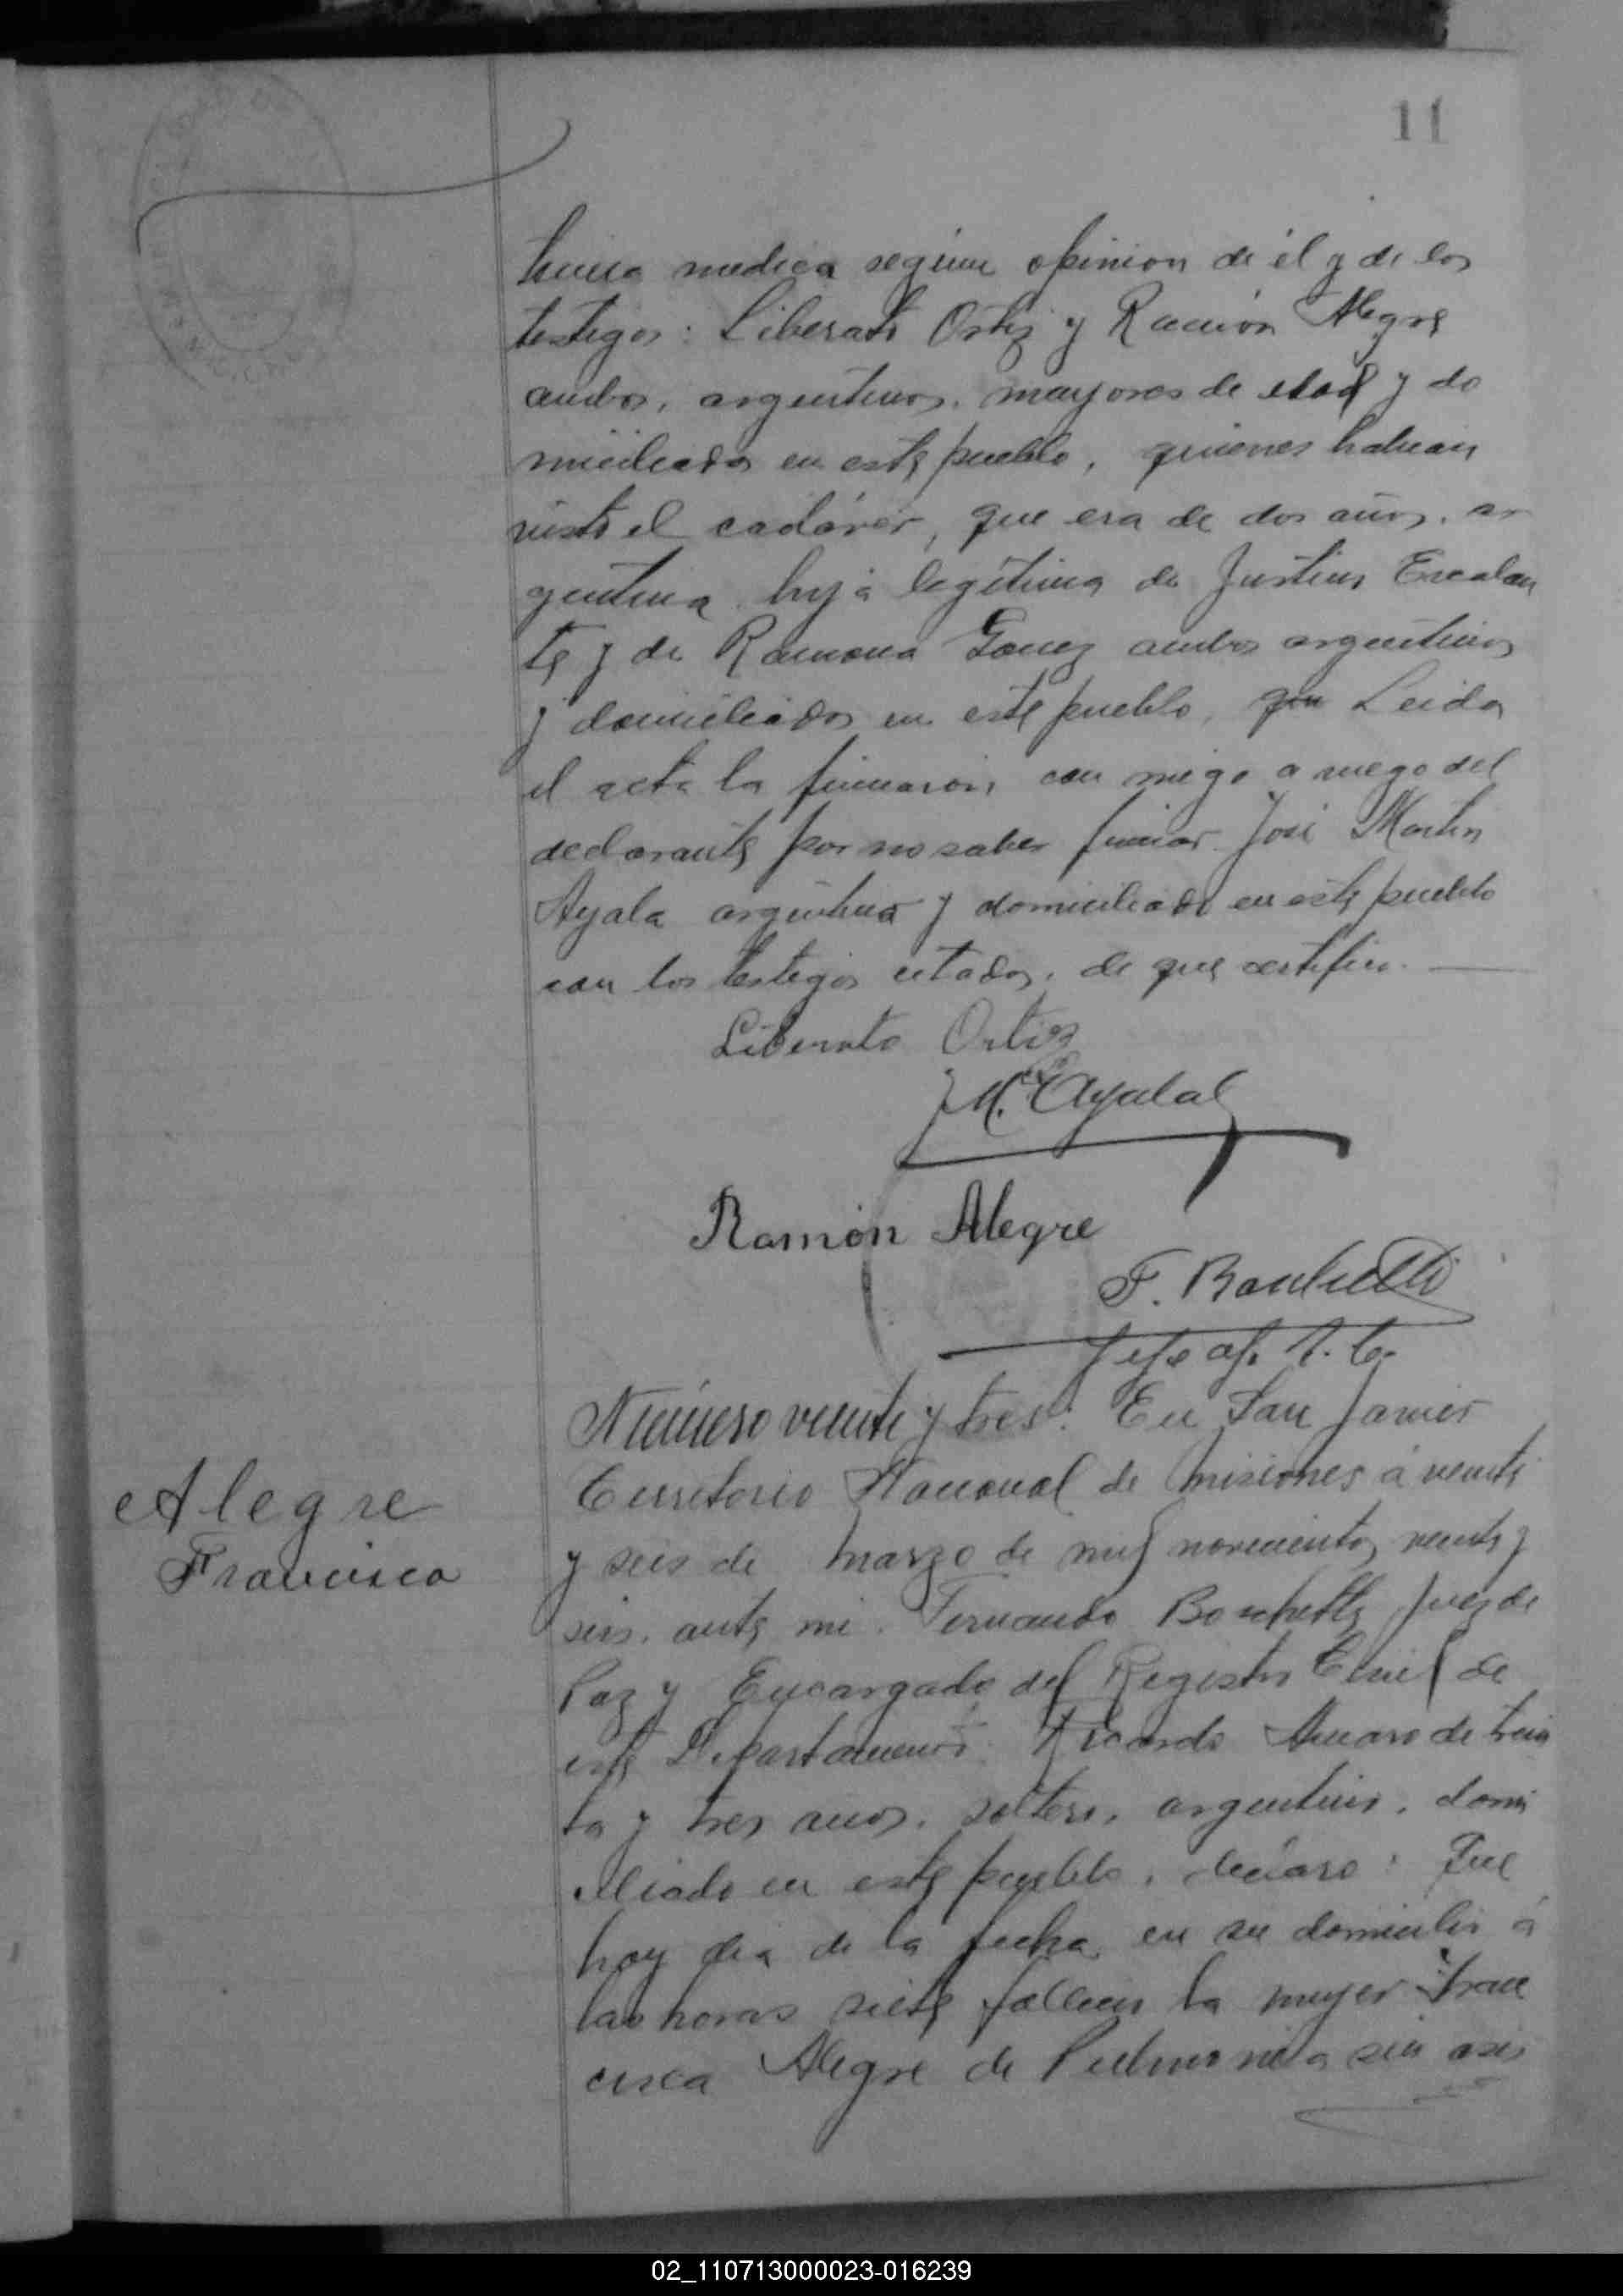 11
tencia medica segun opinion de él y de los
testigos: Liberato Ortiz y Ramón Alegre
ambos, argentinos, mayores de edad y do
miciliados en este pueblo, quienes habian
visto el cadáver, que era de dos años, ar
gentina hija legitima de Justino Escalan
te y de Ramona Gomez ambos argentinos
y domiciliados en este pueblo, que Leida
el acta la firmaron con migo a ruego del
declarante por no saber firmar José Martin
Ayala argentino y domiciliado en este pueblo
con los testigos citados, de que certifico.
Liberato Ortiz
J M. Ayala
Ramón Alegre
F.
Jefe
Alegre
Francisca
Número veinte y tres: En San Javier
Territorio Nacional de Misiones á veinte
y seis de Marzo de mil novecientos veinte y
seis, ante mi Fernando Juez de
Paz y Encargado del Registro Civil de
este Departamento: Ricardo de trein
ta y tres años, soltero, argentino, domi
ciliado en este pueblo, declaro: Que
hoy dia de la fecha, en su domicilio á
las horas siete fallecio la mujer Fran
cisca Alegre de Pulmonia sin asis
02_110713000023-016239